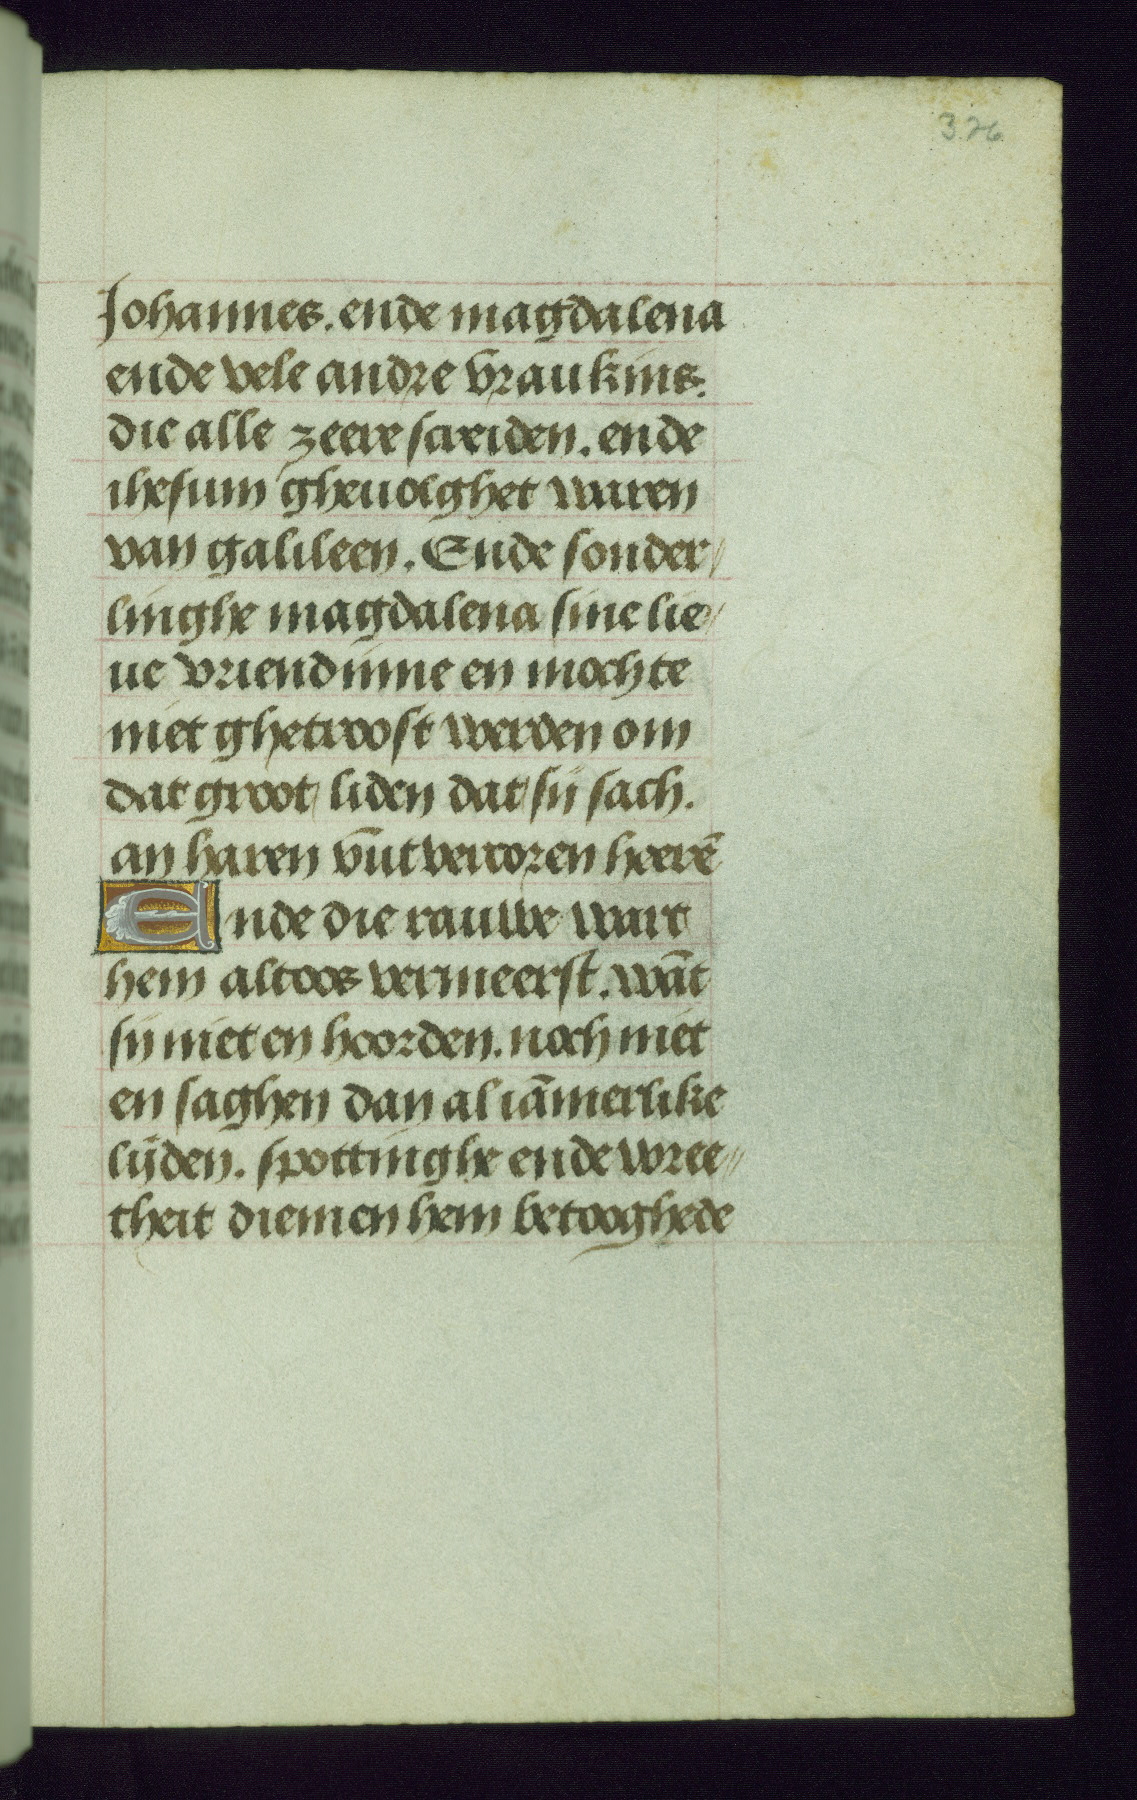 3.26
Johannes. ende magdalena
ende vele andre vraukins.
die alle zeere screiden. ende
ihesum gheuolghet waren
van galileen. Ende sonder//
linghe magdalena sine lie//
ue vriendinne en mochte
niet ghetroost werden om
dat groot liden dat sij sach.
an haren vut vercoren heerē
Ende die rauwe wart
hem altoos vermeerst. wāt
sij niet en hoorden. noch niet
en saghen dan al iāmerlike
lijden. spottinghe ende wree//
theit diemen hem betooghede